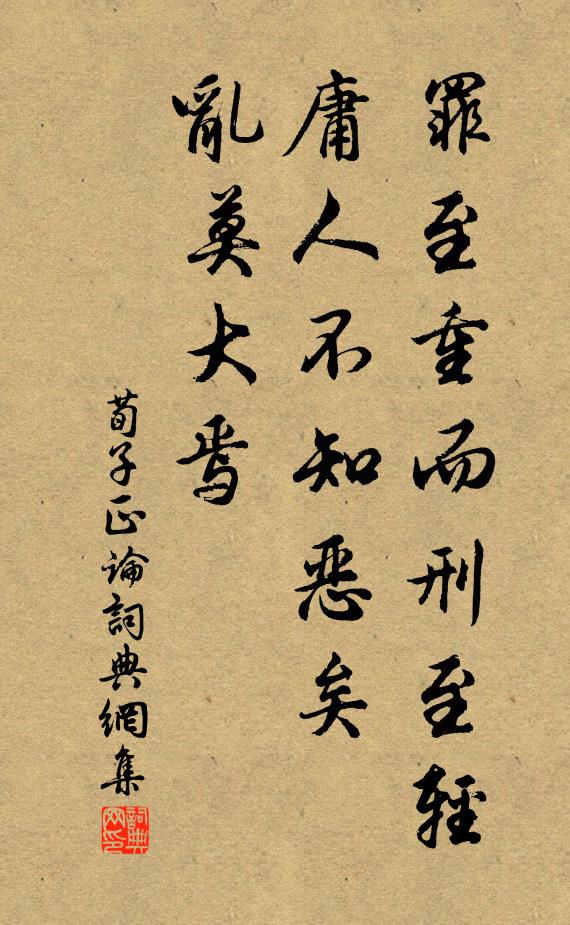 罪至重而刑至輕
庸人不知恶矣
亂莫大焉
荀子正論詞典網集
詞典
网印